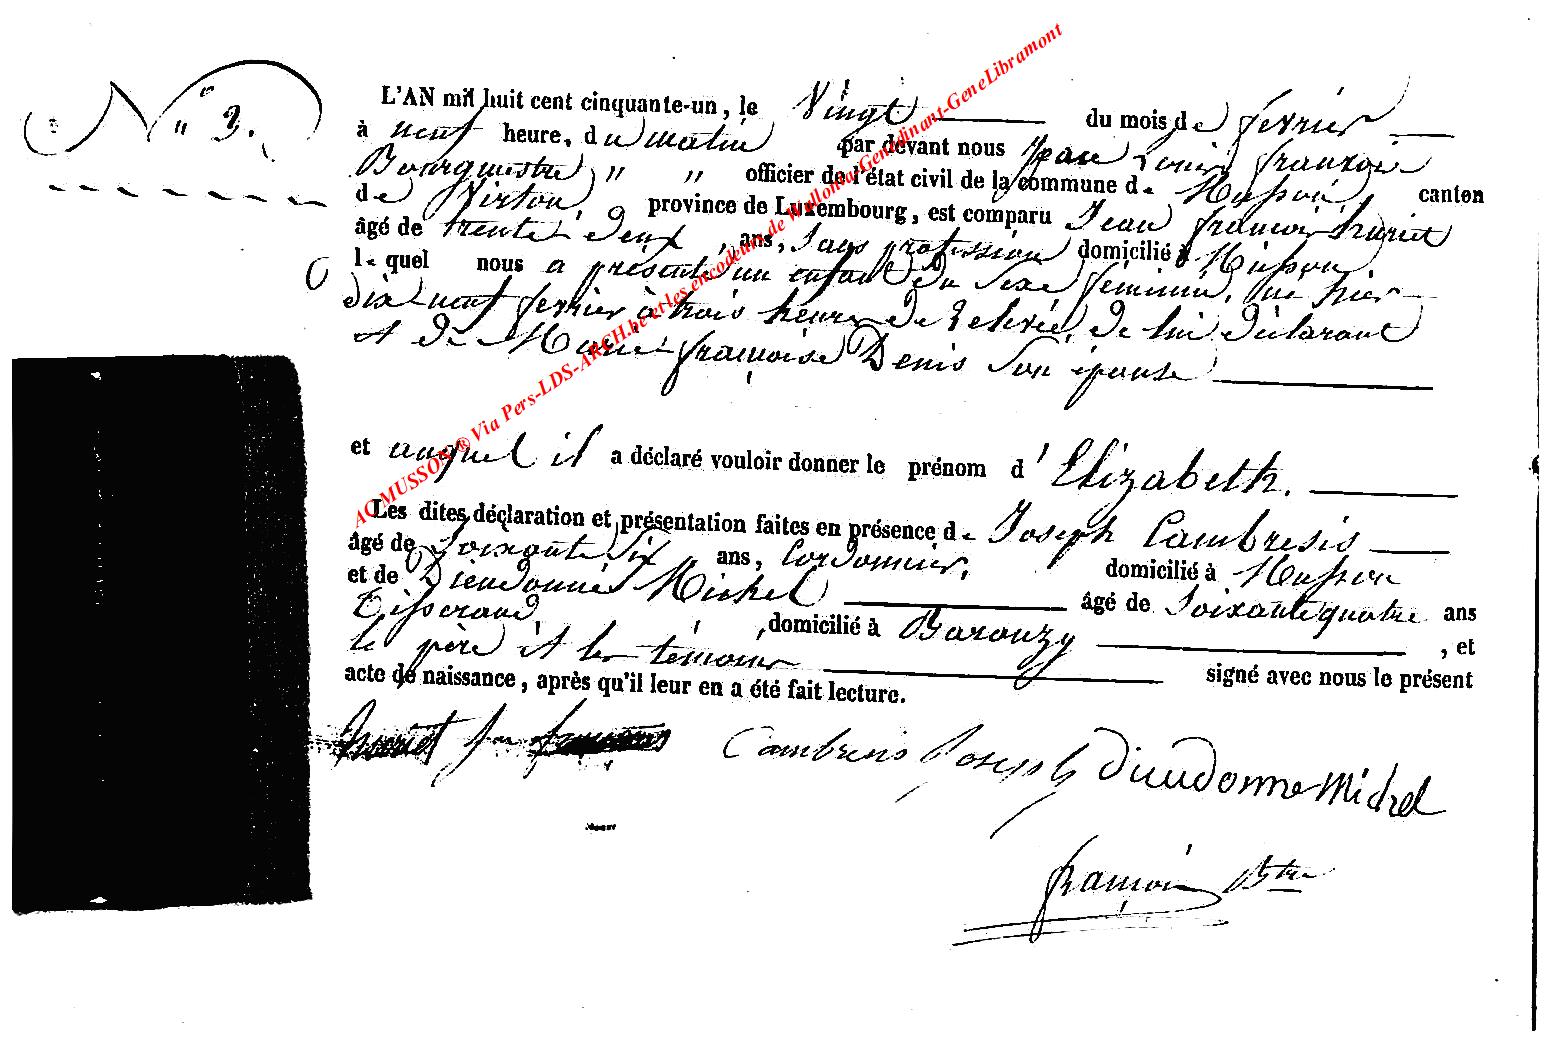 N° 3.
L'AN mil huit cent cinquante-un, le Vingt du mois de fevrier
à neuf heure, du matin par devant nous Jean Louis françois
Bourgmestre " " officier de l'état civil de la commune de Musson, canton
de Virton, province de Luxembourg, est comparu Jean françois
âgé de trente-deux, ans, sans profession domicilié à Musson
le quel nous a présenté un enfant du sexe féminin, né hier
dix neuf fevrier à trois heure de relevée, de lui déclarant
et de Marie françoise Denis son épouse
et auquel il a déclaré vouloir donner le prénom d'Elizabeth.
Les dites déclaration et présentation faites en présence de Joseph Cambresis
âgé de soixante six ans, Cordonnier, domicilié à Musson
et de Dieudonné Michel âgé de soixante quatre ans
Tisserand, domicilié à Baranzy, et
le père et les témoins signé avec nous le présent
acte de naissance, après qu'il leur en a été fait lecture.
Cambresis Joseph Dieudonne Michel
françois Btre
AC MUSSON ® Via Pers-LDS-ARCH.be et les encodeurs de Wallonia-Genedinant-GeneLibramont